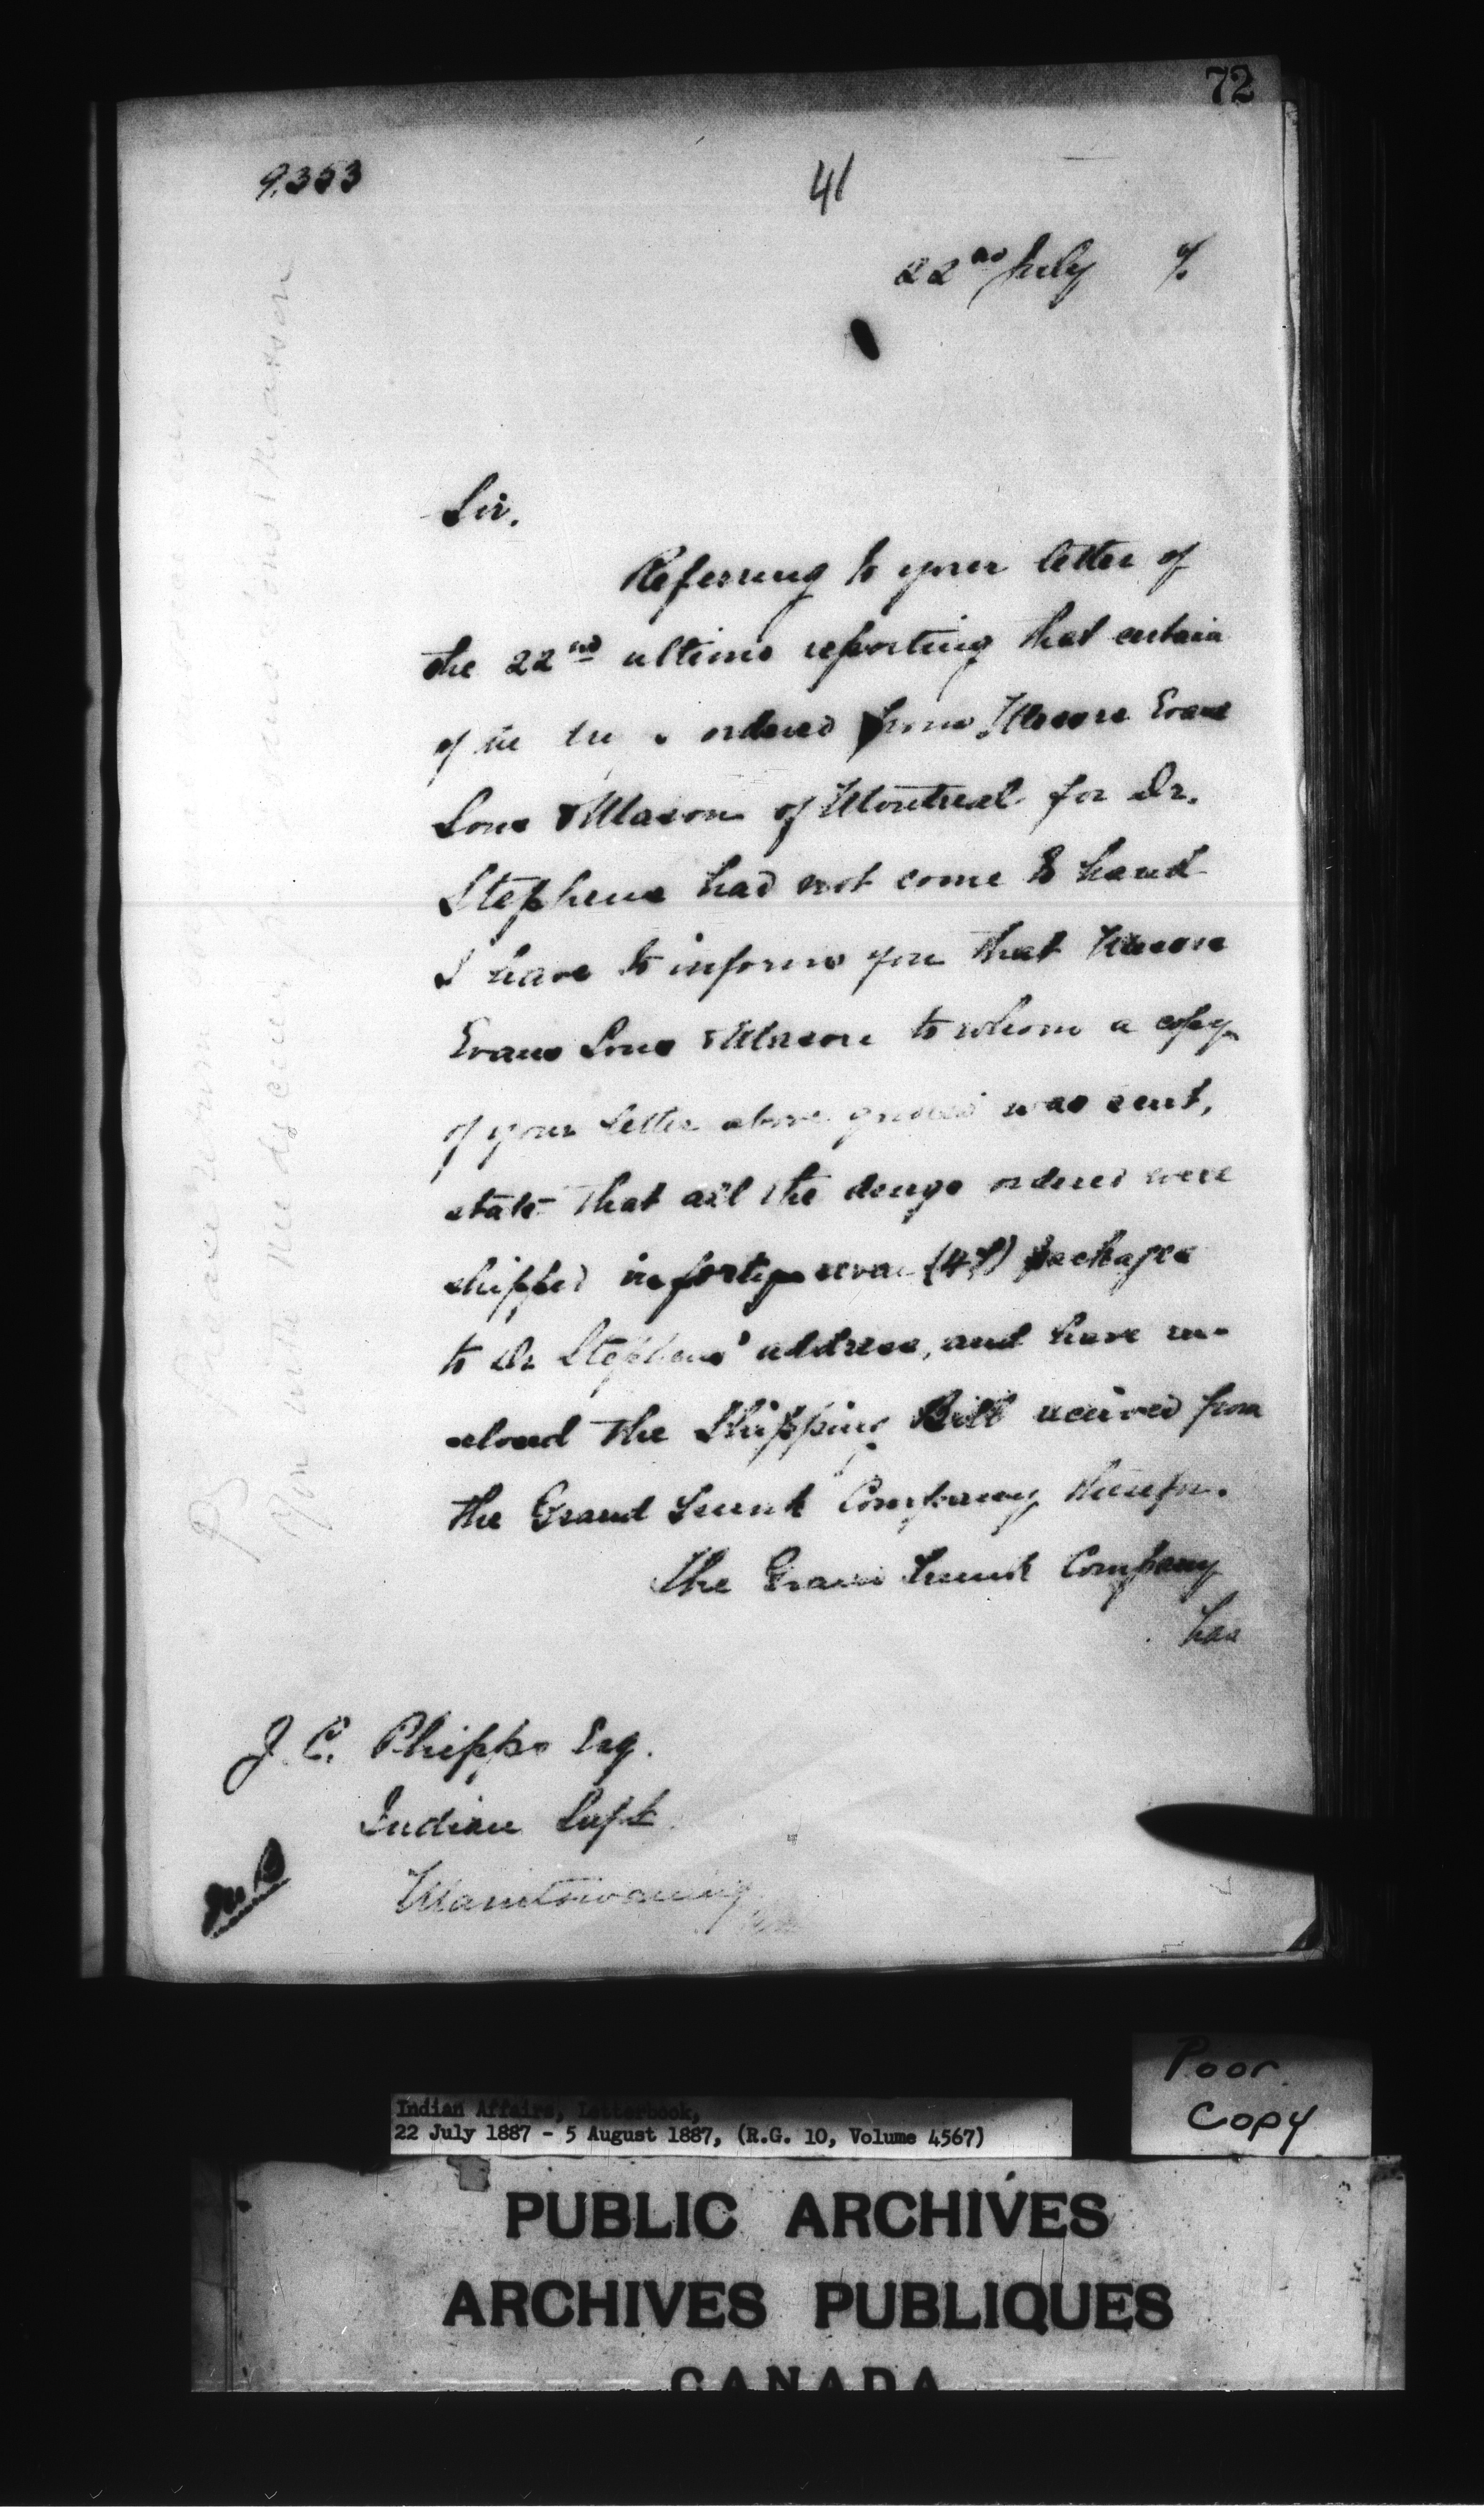 72
9.353
41
22nd July
Sir.
Referring to your letter of
the 22nd ultimo reporting that certain
of the ordered from Messrs Evans
Sons & Mason of Montreal for Dr.
Stephens had not come to hand
I have to inform you that Messrs
Evans Sons & Mason to whom a copy
of your letter above was sent,
state that all the drugs ordered were
shipped in forty seven (47) packages
to Dr Stephens' address, and have en-
closed the Shipping Bill received from
the Grand Trunk Company therefor.
The Grand Trunk Company
has
J. C. Phipps Esq.
Indian Supt
Manitowaning
Poor
Copy
Indian Affairs, Letterbook,
22 July 1887 - 5 August 1887, (R.G. 10, Volume 4567)
PUBLIC ARCHIVES
ARCHIVES PUBLIQUES
CANADA